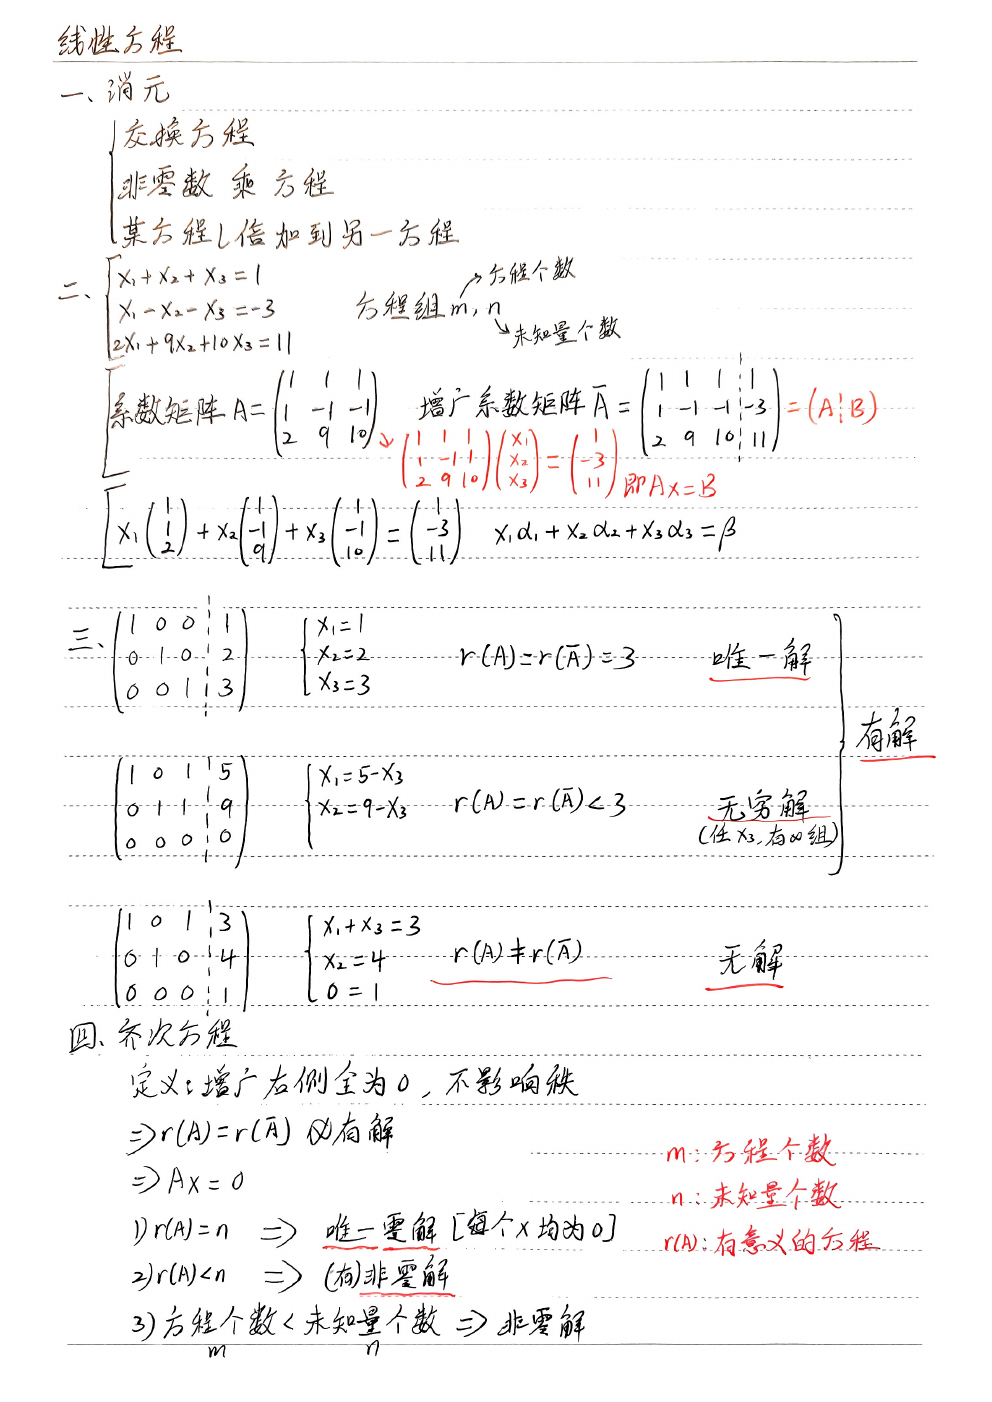 线性方程
一、消元
交换方程
非零数 乘 方程
某方程 l 倍加到另一方程
二、 x₁+x₂+x₃=1
x₁-x₂-x₃=-3
2x₁+9x₂+10x₃=11
方程组 m, n
→方程个数
→未知量个数
系数矩阵 A= (1 1 1; 1 -1 -1; 2 9 10) 增广系数矩阵 Ā= (1 1 1 ¦ 1; 1 -1 -1 ¦ -3; 2 9 10 ¦ 11) =(A¦B)
(1 1 1; 1 -1 1; 2 9 10)(x₁; x₂; x₃)=(1; -3; 11) 即Ax=B
x₁(1; 1; 2)+x₂(1; -1; 9)+x₃(1; -1; 10)=(1; -3; 11) x₁α₁+x₂α₂+x₃α₃=β
三、 (1 0 0 ¦ 1; 0 1 0 ¦ 2; 0 0 1 ¦ 3) x₁=1 x₂=2 x₃=3 r(A)=r(Ā)=3 唯一解
有解
(1 0 1 ¦ 5; 0 1 1 ¦ 9; 0 0 0 ¦ 0) x₁=5-x₃ x₂=9-x₃ r(A)=r(Ā)<3 无穷解
(任x₃,有∞组)
(1 0 1 ¦ 3; 0 1 0 ¦ 4; 0 0 0 ¦ 1) x₁+x₃=3 x₂=4 0=1 r(A)≠r(Ā) 无解
四、齐次方程
定义:增广右侧全为0,不影响秩
⇒r(A)=r(Ā) 有解
⇒Ax=0
1)r(A)=n ⇒ 唯一零解[每个x均为0]
2)r(A)<n ⇒ (有)非零解
3)方程个数<未知量个数⇒非零解
m n
m:方程个数
n:未知量个数
r(A):有意义的方程